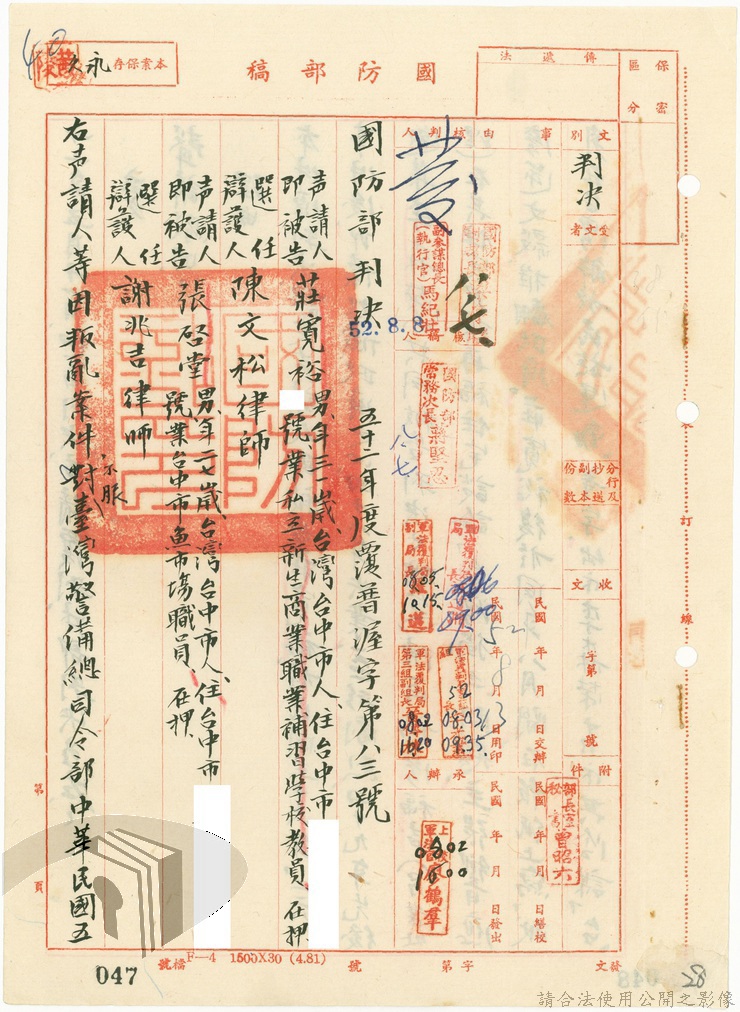 國防部稿
本案保存
永久
保密
區分
傳遞法
文別
判決
事由
核判人
受文者
副參謀總長
(執行官)馬紀壯
八、七、
52.8.8
國防部
常務次長蔣堅忍
八、七
分行及
抄送
副本
份數
收文
字第
號
附件
民國 年 月 日交辦
民國 年 月 日用印
52 8 13
軍法覆判局
副局長
08.05.
10.15.
軍法覆判局
第三組副組長
08.02
16.20
52
08.03
09.35.
承辦人
民國 年 月 日繕校
民國 年 月 日發出
部長室
秘書
曾昭六
08.02
16.00
發文
字第
號
檔號
裝訂線
國防部判決 五十二年度覆普渥字第八三號
聲請人
即被告 莊寬裕 男、年三一歲、台灣台中市人、住台中市
號、業私立新生商業職業補習學校教員 在押
選任
辯護人 陳文松律師
聲請人
即被告 張啓堂 男、年二七歲、台灣台中市人、住台中市
號業台中市魚市場職員、在押、
選任
辯護人 謝兆吉律師
右声請人等因叛亂案件不服對臺灣警備總司令部中華民國五
第 頁
F—4 1500X30 (4.81)
047
28
請合法使用公開之影像